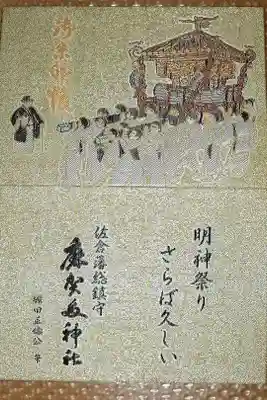 御朱印帳
明神祭り
さらば久しい
佐倉藩総鎮守
麻賀多神社
堀田正倫公 筆